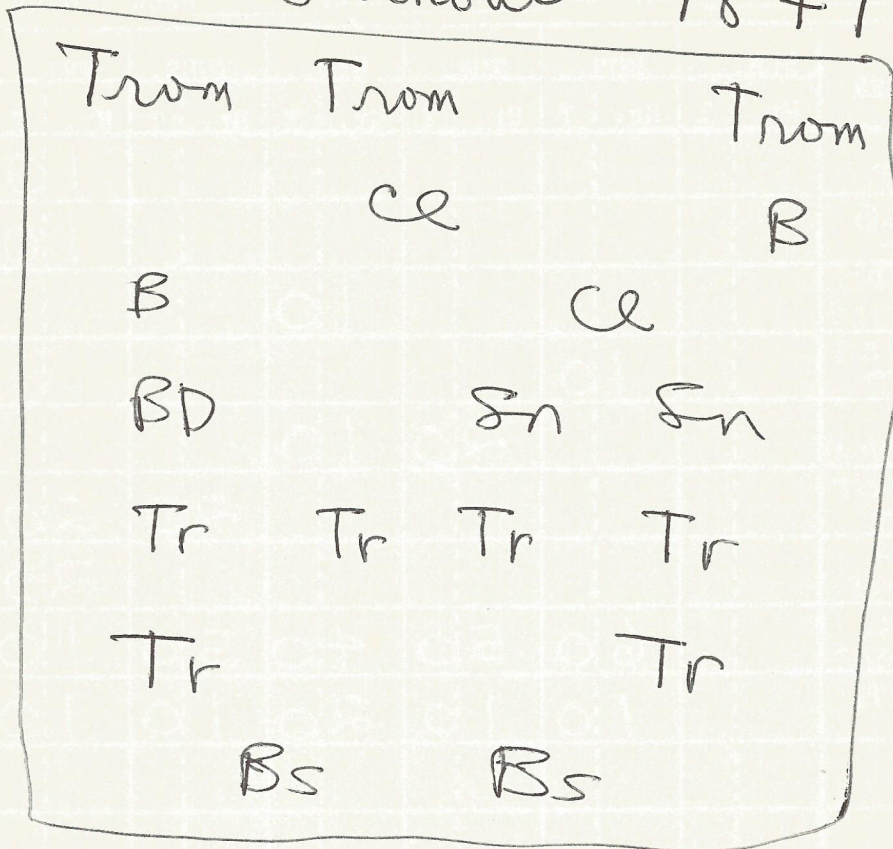 18 + 1
Trom Trom Trom
Cl B
B Cl
BD Sn Sn
Tr Tr Tr Tr
Tr Tr
Bs Bs